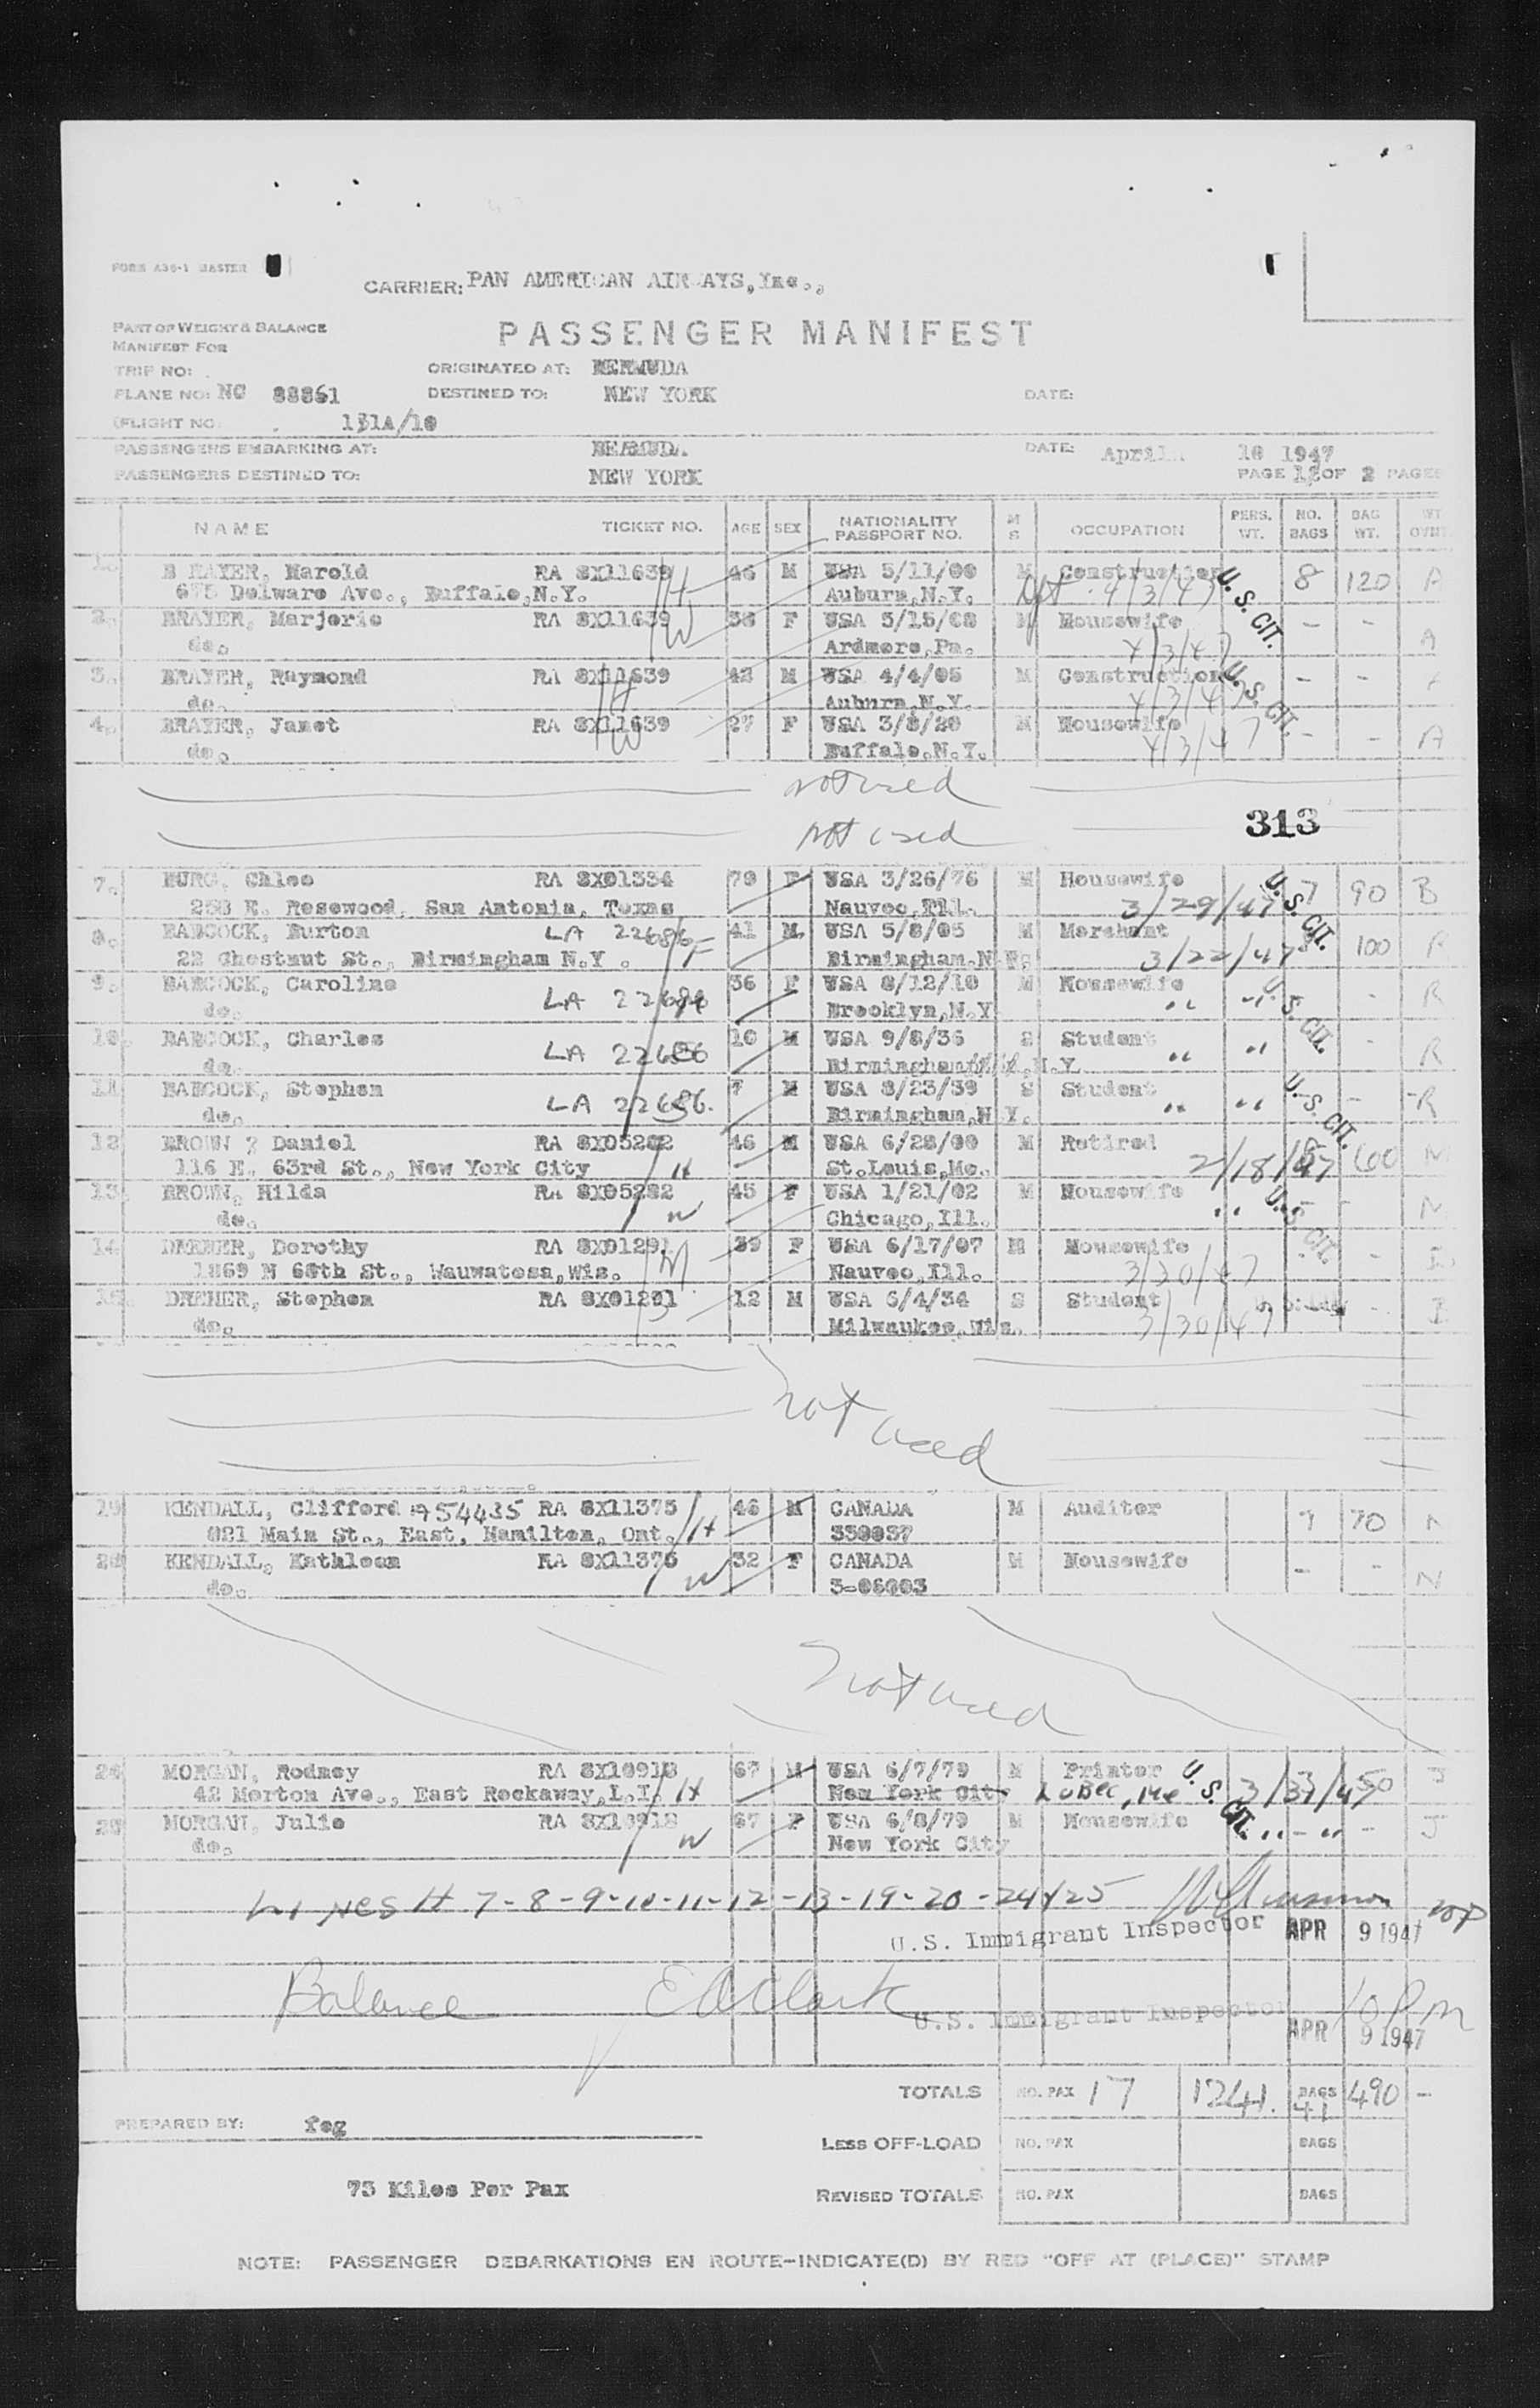 FORM A36-1 MASTER
CARRIER: PAN AMERICAN AIRWAYS, Inc.,
PART OF WEIGHT & BALANCE
MANIFEST FOR
PASSENGER MANIFEST
TRIP NO:
ORIGINATED AT: BERMUDA
PLANE NO: NC 88861
DESTINED TO: NEW YORK
DATE:
FLIGHT NO. 131A/10
PASSENGERS EMBARKING AT: BERMUDA
DATE: April 10 1947
PASSENGERS DESTINED TO: NEW YORK
PAGE 1 OF 2 PAGES
NAME TICKET NO. AGE SEX NATIONALITY PASSPORT NO. M S OCCUPATION PERS. WT. NO. BAGS BAG WT.
1. BRAYER, Harold RA 8X11639 H 46 M USA 5/11/00 M Construction U.S. CIT. 8 120 A
675 Delware Ave., Buffalo, N.Y. Auburn, N.Y. 4/3/47
2. BRAYER, Marjorie RA 8X11639 W 38 F USA 5/15/08 M Housewife - - A
do. Ardmore, Pa. 4/3/47
3. BRAYER, Raymond RA 8X11639 H 42 M USA 4/4/05 M Construction U.S. CIT. - -
do. Auburn, N.Y. 4/3/47
4. BRAYER, Janet RA 8X11639 W 27 F USA 3/8/20 M Housewife - - A
do. Buffalo, N.Y. 4/3/47
not used
not used
313
7. BURG, Chloe RA 8X01334 70 F USA 3/26/76 M Housewife U.S. CIT. 7 90 B
258 E. Rosewood, San Antonio, Texas Nauvoo, Ill. 3/29/47
8. BABCOCK, Burton LA 22686 F 41 M USA 5/8/05 M Merchant 100 R
22 Chestnut St., Birmingham N.Y. Birmingham, N.Y. 3/22/47
9. BABCOCK, Caroline LA 22686 36 F USA 8/12/10 M Housewife U.S. CIT. - R
do. Brooklyn, N.Y. " "
10. BABCOCK, Charles LA 22686 10 M USA 9/8/36 S Student - R
do. Birmingham, N.Y. " "
11 BABCOCK, Stephen LA 22686. 7 M USA 8/23/39 S Student U.S. CIT. - - R
do. Birmingham, N.Y. " "
12 BROWN, Daniel RA 8X05282 H 46 M USA 6/28/00 M Retired 60 N
116 E. 63rd St., New York City St. Louis, Mo. 2/18/47
13. BROWN, Hilda RA 8X05282 W 45 F USA 1/21/02 M Housewife U.S. CIT. - - N
do. Chicago, Ill. "
14 DREHER, Dorothy RA 8X01291 M 39 F USA 6/17/07 M Housewife - -
1869 N 68th St., Wauwatosa, Wis. Nauvoo, Ill. 3/30/47
15. DREHER, Stephen RA 8X01291 12 M USA 6/4/34 S Student -
do. Milwaukee, Wis. 3/30/47
not used
19 KENDALL, Clifford A954435 RA 8X11375 H 46 M CANADA M Auditor 7 70 N
821 Main St., East, Hamilton, Ont. 350037
20 KENDALL, Kathleen RA 8X11376 W 32 F CANADA M Housewife - - N
do. 3-06003
not used
24 MORGAN, Rodney RA 8X10918 H 67 M USA 6/7/79 M Printer U.S. CIT. 50 J
42 Morton Ave., East Rockaway, L.I. New York City Lubec, Me 3/31/47
25 MORGAN, Julie RA 8X10918 W 67 F USA 6/8/79 M Housewife " - " - J
do. New York City
Lines # 7-8-9-10-11-12-13-19-20-24&25
U.S. Immigrant Inspector APR 9 1947
Balance E A Clark 10 Pm
U.S. Immigrant Inspector APR 9 1947
TOTALS NO. PAX 17 1241. BAGS 41 490 -
PREPARED BY: feg
LESS OFF-LOAD NO. PAX BAGS
73 Kilos Per Pax
REVISED TOTALS NO. PAX BAGS
NOTE: PASSENGER DEBARKATIONS EN ROUTE-INDICATE(D) BY RED "OFF AT (PLACE)" STAMP